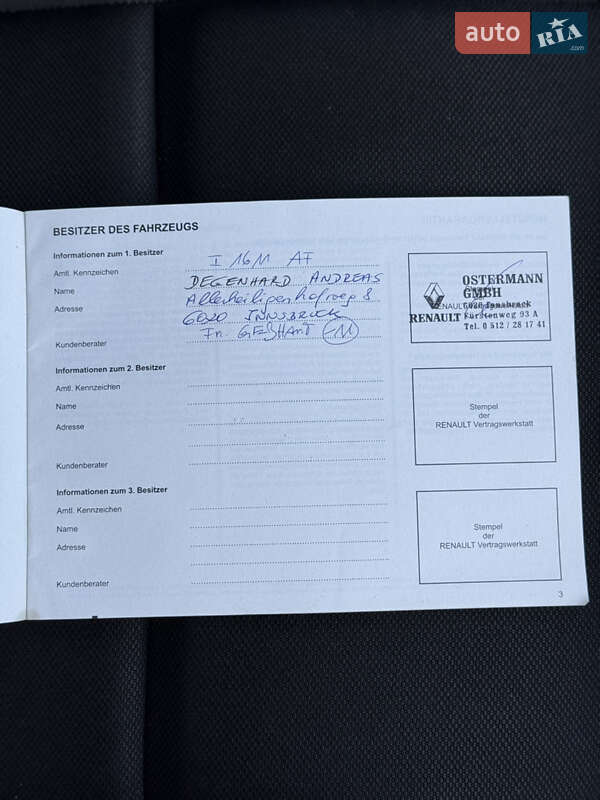 auto RIA.com
BESITZER DES FAHRZEUGS
Informationen zum 1. Besitzer
Amtl. Kennzeichen I 16M AF
Name DEGENHARD ANDREAS
Adresse
6020 INNSBRUCK
Kundenberater
OSTERMANN
GMBH
6020 Innsbruck
RENAULT Fürstenweg 93 A
Tel. 0 512 / 28 17 41
Informationen zum 2. Besitzer
Amtl. Kennzeichen
Name
Adresse
Kundenberater
Stempel
der
RENAULT Vertragswerkstatt
Informationen zum 3. Besitzer
Amtl. Kennzeichen
Name
Adresse
Kundenberater
Stempel
der
RENAULT Vertragswerkstatt
3